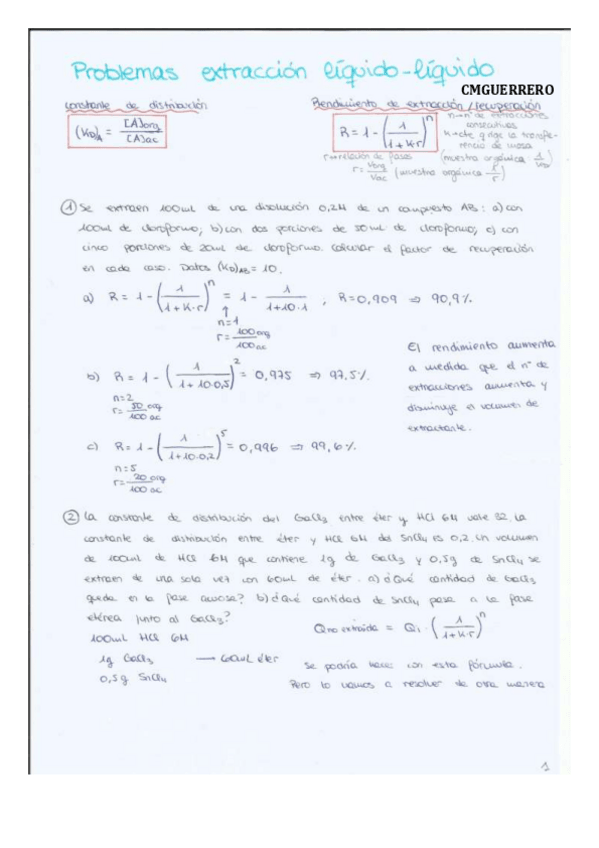 Problemas extracción líquido-líquido
CMGUERRERO
constante de distribución
(K_D)_A = [A]org / [A]ac
Rendimiento de extracción/recuperación
R = 1 - (1 / (1 + K·r))^n
n → nº de extracciones
consecutivas
K → cte q rige la transfe-
rencia de masa
r → relación de fases
r = Vorg / Vac
(muestra orgánica
(muestra orgánica
① Se extraen 100mL de una disolución 0,2M de un compuesto AB: a) con
100mL de cloroformo; b) con dos porciones de 50mL de cloroformo; c) con
cinco porciones de 20mL de cloroformo. Calcular el factor de recuperación
en cada caso. Datos (K_D)_AB = 10.
a) R = 1 - (1 / (1 + K·r))^n = 1 - 1 / (1 + 10·1) ; R = 0,909 ⇒ 90,9%
n = 1
r = 100 org / 100 ac
b) R = 1 - (1 / (1 + 10·0,5))^2 = 0,975 ⇒ 97,5%
n = 2
r = 50 org / 100 ac
c) R = 1 - (1 / (1 + 10·0,2))^5 = 0,996 ⇒ 99,6%
n = 5
r = 20 org / 100 ac
El rendimiento aumenta
a medida que el nº de
extracciones aumenta y
disminuye el volumen de
extractante.
② La constante de distribución del GaCl3 entre éter y HCl 6M vale 32. La
constante de distribución entre éter y HCl 6M del SnCl4 es 0,2. Un volumen
de 100mL de HCl 6M que contiene 1g de GaCl3 y 0,5g de SnCl4 se
extraen de una sola vez con 60mL de éter. a) ¿Qué cantidad de GaCl3
queda en la fase acuosa? b) ¿Qué cantidad de SnCl4 pasa a la fase
etérea junto al GaCl3?
100mL HCl 6M
1g GaCl3 → 60mL éter
0,5g SnCl4
Q no extraída = Qi · (1 / (1 + K·r))^n
Se podría hacer con esta fórmula.
Pero lo vamos a resolver de otra manera
1